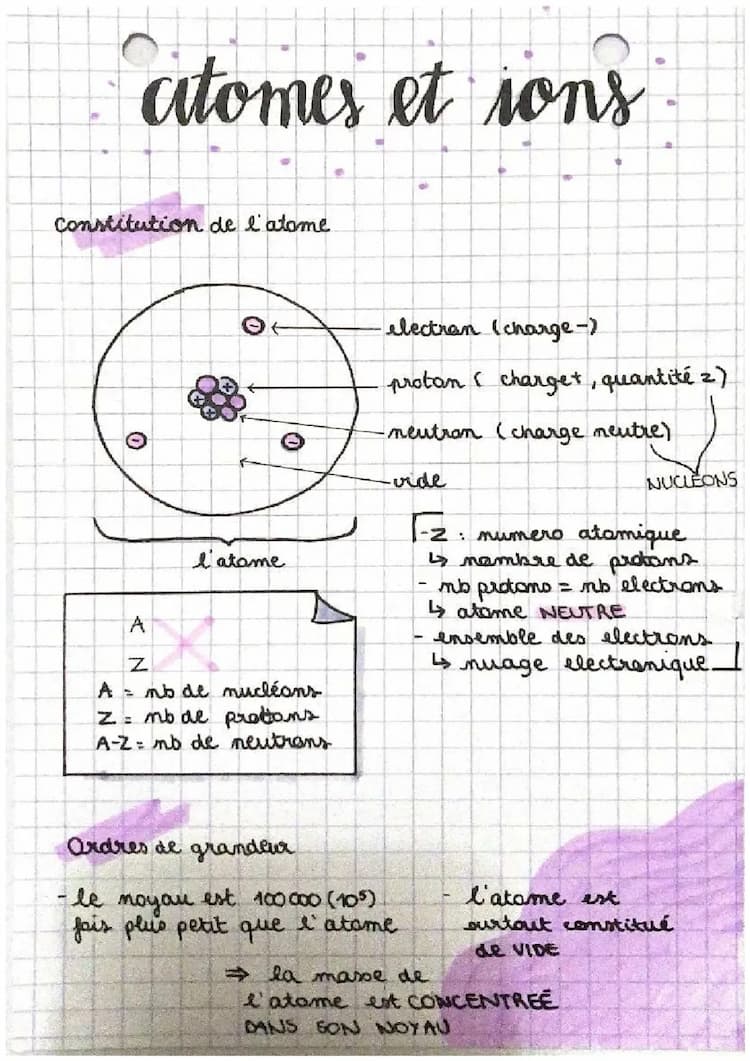 atomes et ions
Constitution de l'atome
électron (charge -)
proton ( charge+, quantité z)
neutron (charge neutre)
vide
NUCLÉONS
l'atome
- Z : numero atomique
↳ nombre de protons
- nb protons = nb electrons
↳ atome NEUTRE
- ensemble des electrons
↳ nuage electronique
A
X
Z
A = nb de nucléons
Z = nb de protons
A-Z = nb de neutrons
Ordres de grandeur
- le noyau est 100 000 (10⁵)
fois plus petit que l'atome
- l'atome est
surtout constitué
de VIDE
⇒ la masse de
l'atome est CONCENTREÉ
DANS SON NOYAU